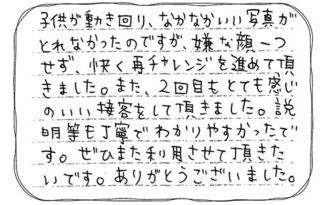 子供が動き回り、なかなかいい写真が
とれなかったのですが、嫌な顔一つ
せず、快く再チャレンジを進めて頂
きました。また、2回目もとても感じ
のいい接客をして頂きました。説
明等も丁寧でわかりやすかったで
す。ぜひまた利用させて頂きた
いです。ありがとうございました。